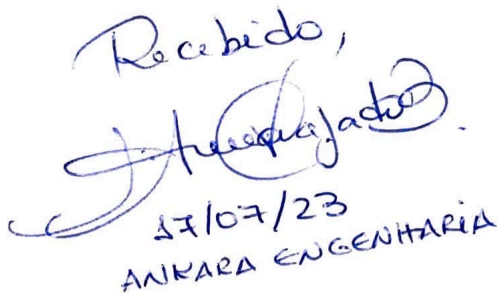 Recebido,
17/07/23
ANKARA ENGENHARIA